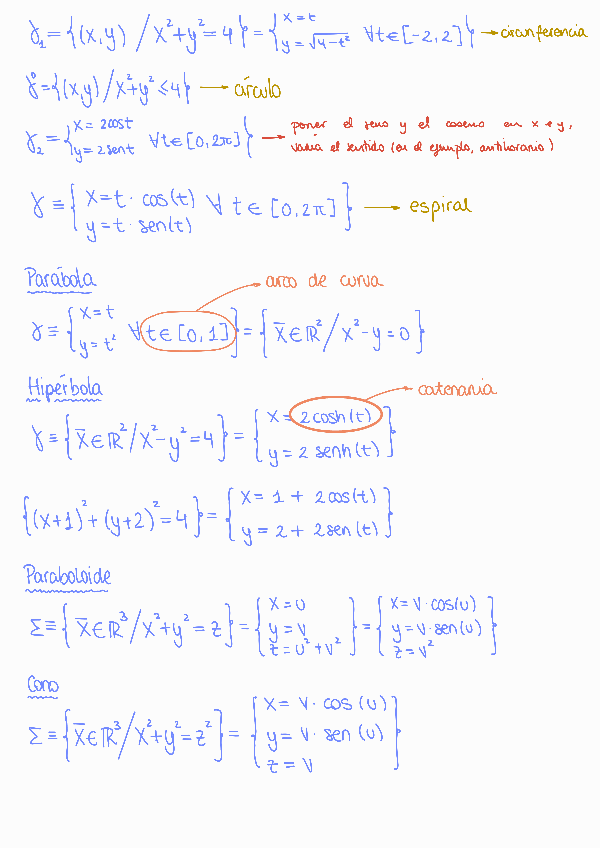 γ₁ = {(x,y) / x²+y² = 4} = { x = t
y = √(4-t²) ∀t∈[-2,2]} → circunferencia
γ° = {(x,y) / x²+y² ≤ 4} → círculo
γ₂ = { x = 2cost
y = 2sent ∀t∈[0,2π]} → poner el seno y el coseno en x e y,
varía el sentido (en el ejemplo, antihorario)
γ ≡ { x = t · cos(t)
y = t · sen(t) ∀ t ∈ [0,2π]} → espiral
Parábola
arco de curva
γ ≡ { x = t
y = t² ∀ t∈[0,1]} = { x̄∈ℝ² / x²-y = 0}
Hipérbola
catenaria
γ ≡ { x̄∈ℝ² / x²-y² = 4} = { x = 2cosh(t)
y = 2 senh(t) }
{(x+1)² + (y+2)² = 4} = { x = 1 + 2cos(t)
y = 2 + 2sen(t) }
Paraboloide
Σ ≡ { x̄∈ℝ³ / x²+y² = z} = { x = u
y = v
z = u² + v² } = { x = v · cos(u)
y = v · sen(u)
z = v² }
Cono
Σ ≡ { x̄∈ℝ³ / x²+y² = z²} = { x = v · cos (u)
y = v · sen (u)
z = v }